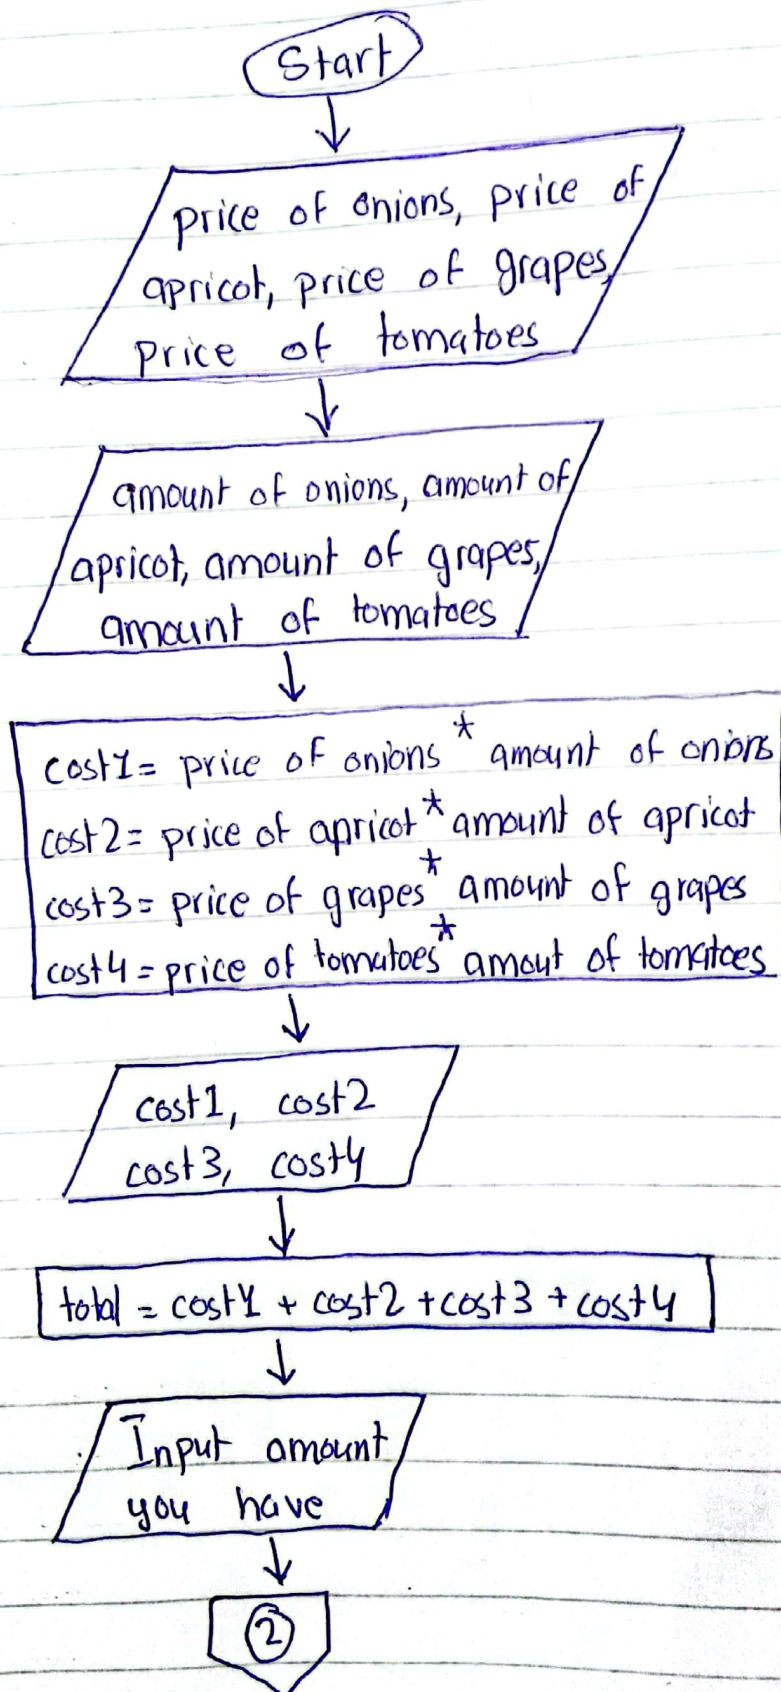 Start
price of onions, price of
apricot, price of grapes,
Price of tomatoes
amount of onions, amount of
apricot, amount of grapes,
amount of tomatoes
cost1= price of onions * amount of onions
cost2= price of apricot * amount of apricot
cost3= price of grapes * amount of grapes
cost4= price of tomatoes * amout of tomatoes
cost1, cost2
cost3, cost4
total = cost1 + cost2 + cost3 + cost4
Input amount
you have
2